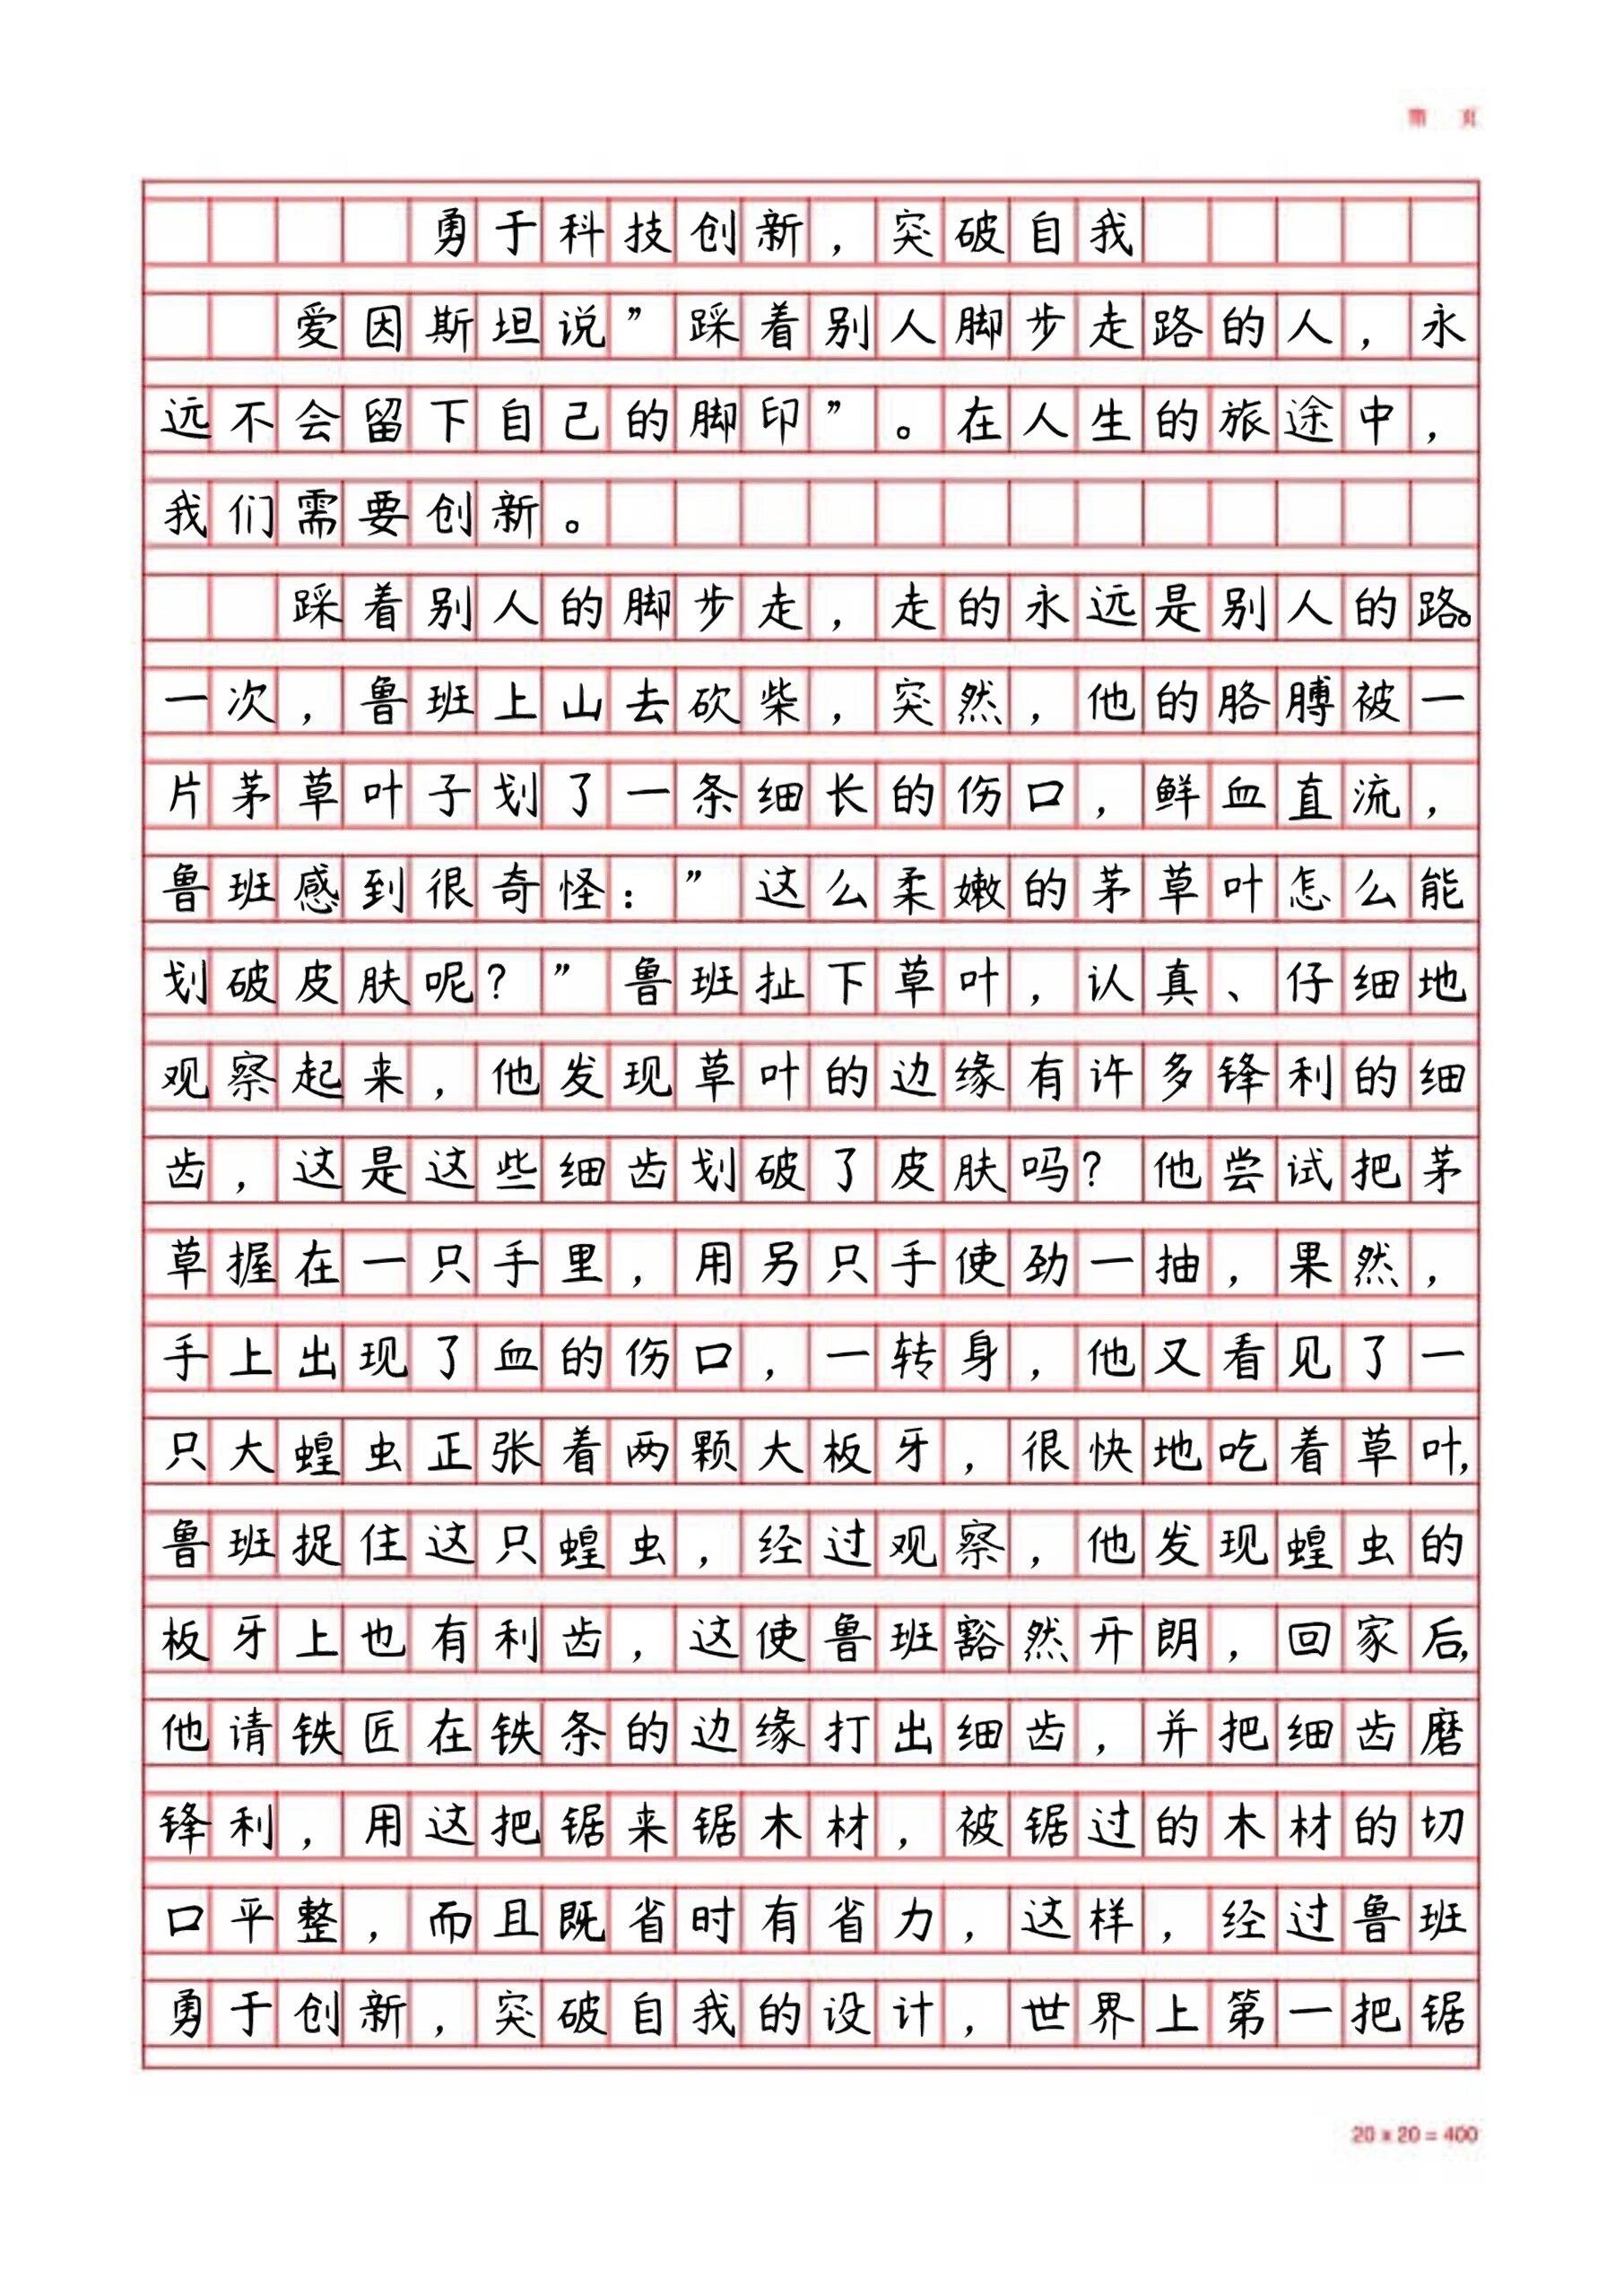 第 页
勇于科技创新，突破自我
爱因斯坦说”踩着别人脚步走路的人，永
远不会留下自己的脚印”。在人生的旅途中，
我们需要创新。
踩着别人的脚步走，走的永远是别人的路。
一次，鲁班上山去砍柴，突然，他的胳膊被一
片茅草叶子划了一条细长的伤口，鲜血直流，
鲁班感到很奇怪：”这么柔嫩的茅草叶怎么能
划破皮肤呢？”鲁班扯下草叶，认真、仔细地
观察起来，他发现草叶的边缘有许多锋利的细
齿，这是这些细齿划破了皮肤吗？他尝试把茅
草握在一只手里，用另只手使劲一抽，果然，
手上出现了血的伤口，一转身，他又看见了一
只大蝗虫正张着两颗大板牙，很快地吃着草叶，
鲁班捉住这只蝗虫，经过观察，他发现蝗虫的
板牙上也有利齿，这使鲁班豁然开朗，回家后，
他请铁匠在铁条的边缘打出细齿，并把细齿磨
锋利，用这把锯来锯木材，被锯过的木材的切
口平整，而且既省时有省力，这样，经过鲁班
勇于创新，突破自我的设计，世界上第一把锯
20 x 20 = 400